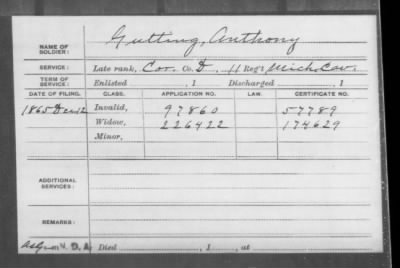 NAME OF SOLDIER: Gutting, Anthony
SERVICE: Late rank, Cor. Co. D, 11 Reg't Mich. Cav.
TERM OF SERVICE: Enlisted , 1 Discharged , 1
DATE OF FILING. CLASS. APPLICATION NO. LAW. CERTIFICATE NO.
1865 Dec 12 Invalid, 97860 57789
Widow, 226422 174629
Minor,
ADDITIONAL SERVICES:
REMARKS:
Died , 1 , at